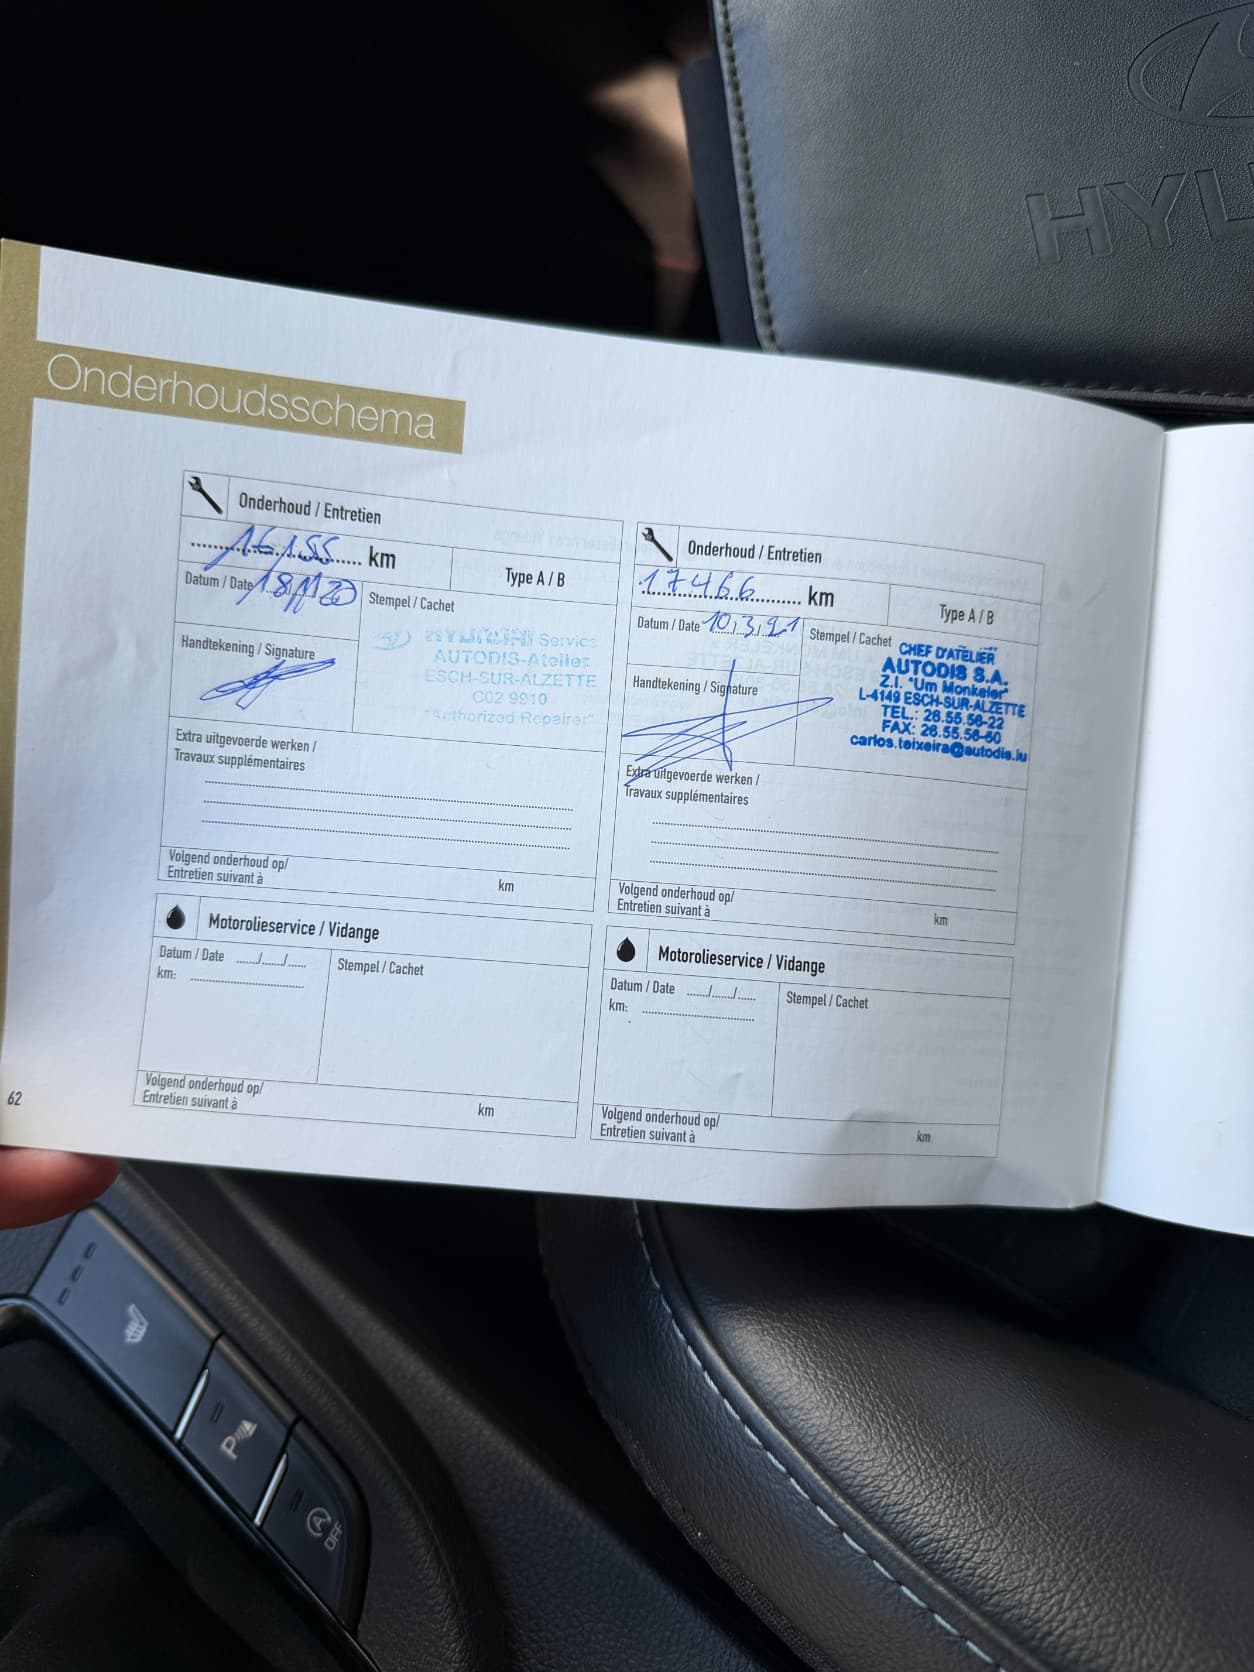 HYU
Onderhoudsschema
Onderhoud / Entretien
16155 km
Type A / B
Datum / Date 18/11/20
Stempel / Cachet
Handtekening / Signature
HYUNDAI Service
AUTODIS-Atelier
ESCH-SUR-ALZETTE
C02 9910
"Authorized Repairer"
Extra uitgevoerde werken /
Travaux supplémentaires
Volgend onderhoud op/
Entretien suivant à
km
Motorolieservice / Vidange
Datum / Date ....../....../......
km:
Stempel / Cachet
Volgend onderhoud op/
Entretien suivant à
km
Onderhoud / Entretien
17466 km
Type A / B
Datum / Date 10/3/21
Stempel / Cachet
Handtekening / Signature
CHEF D'ATELIER
AUTODIS S.A.
Z.I. "Um Monkeler"
L-4149 ESCH-SUR-ALZETTE
TEL.: 26.55.56-22
FAX: 26.55.56-60
carlos.teixeira@autodis.lu
Extra uitgevoerde werken /
Travaux supplémentaires
Volgend onderhoud op/
Entretien suivant à
km
Motorolieservice / Vidange
Datum / Date ....../....../......
km:
Stempel / Cachet
Volgend onderhoud op/
Entretien suivant à
km
62
P
A
OFF